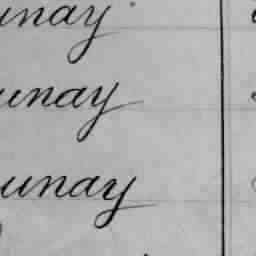 unay
unay
unay